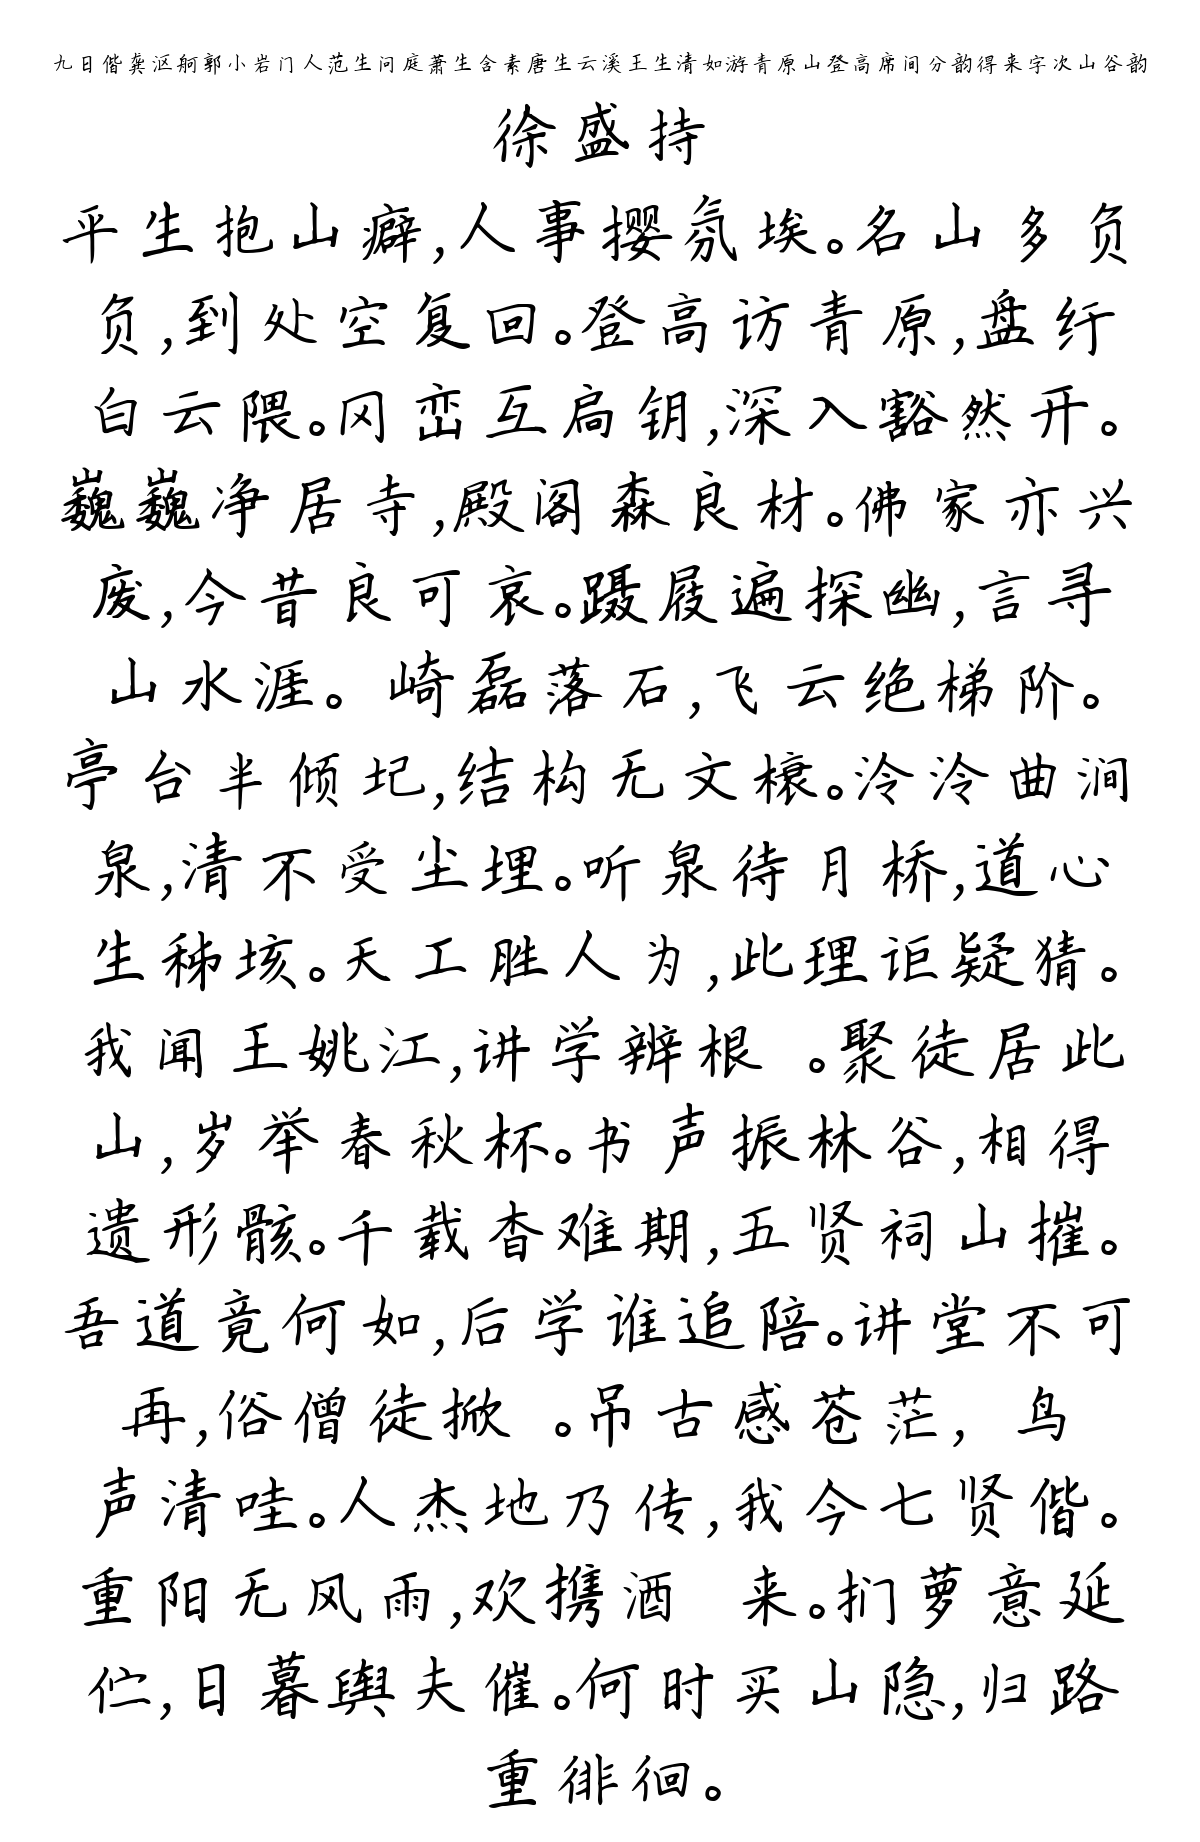 九日偕龚沤舸郭小岩门人范生问庭萧生含素唐生云溪王生清如游青原山登高席间分韵得来字次山谷韵
徐盛持
平生抱山癖,人事撄氛埃。名山多负
负,到处空复回。登高访青原,盘纡
白云隈。冈峦互扃钥,深入豁然开。
巍巍净居寺,殿阁森良材。佛家亦兴
废,今昔良可哀。蹑屐遍探幽,言寻
山水涯。崎磊落石,飞云绝梯阶。
亭台半倾圮,结构无文榱。泠泠曲涧
泉,清不受尘埋。听泉待月桥,道心
生稊垓。天工胜人为,此理讵疑猜。
我闻王姚江,讲学辨根 。聚徒居此
山,岁举春秋杯。书声振林谷,相得
遗形骸。千载杳难期,五贤祠山摧。
吾道竟何如,后学谁追陪。讲堂不可
再,俗僧徒掀 。吊古感苍茫,鸟
声清哇。人杰地乃传,我今七贤偕。
重阳无风雨,欢携酒 来。扪萝意延
伫,日暮舆夫催。何时买山隐,归路
重徘徊。